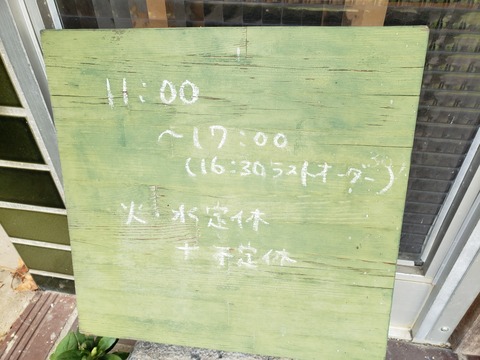 11:00
～17:00
(16:30ラストオーダー)
火 水定休
+不定休